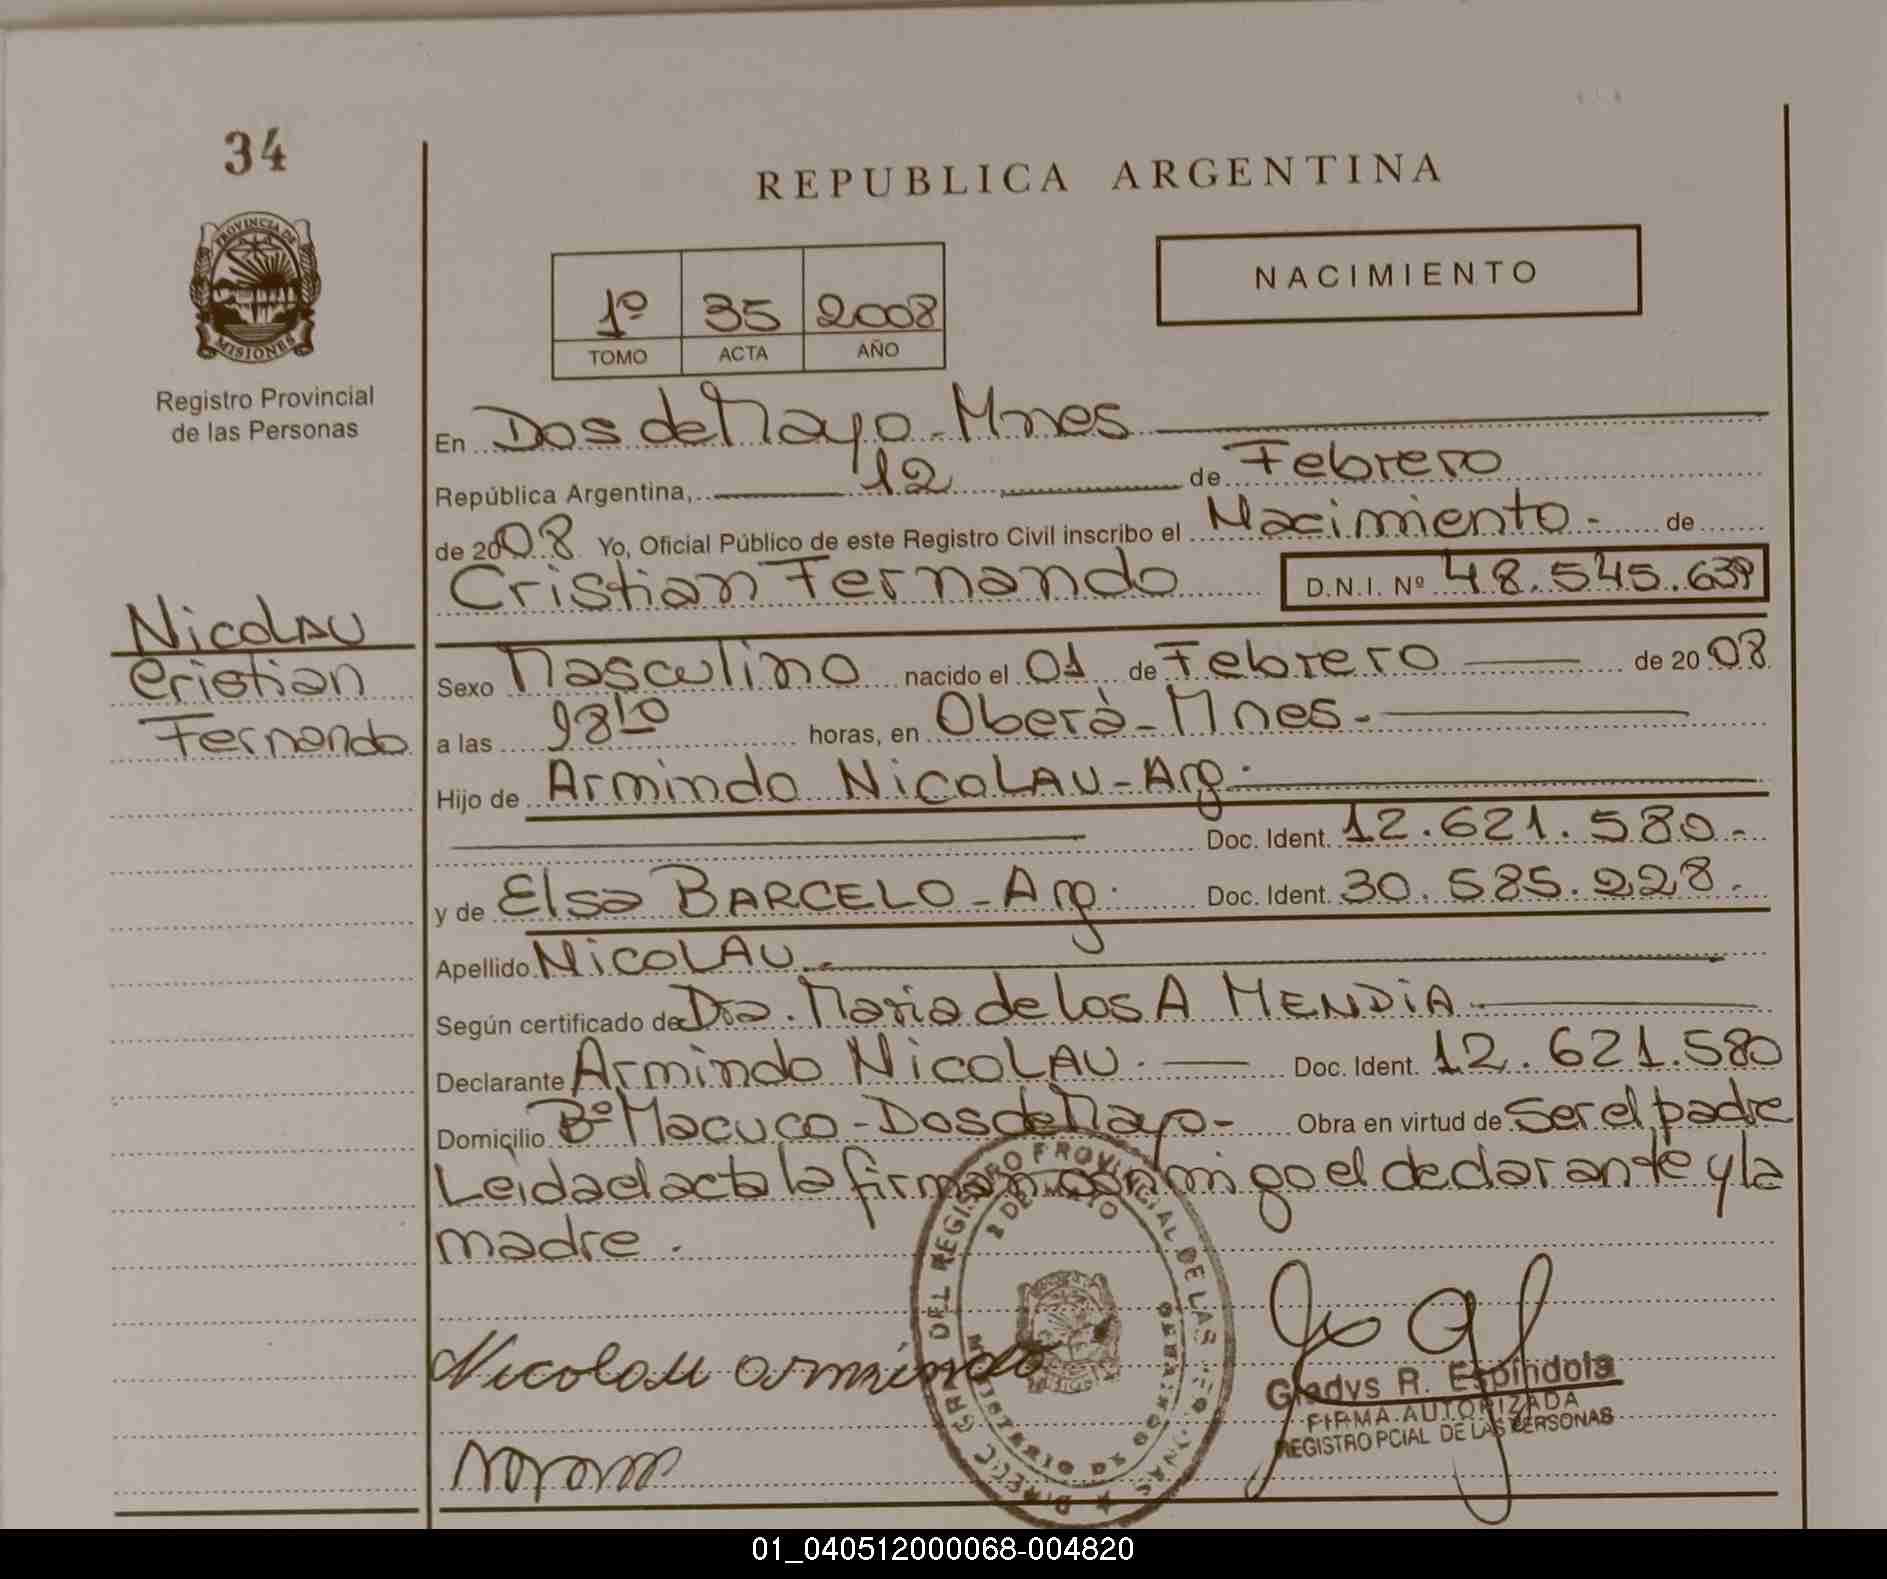 34
PROVINCIA DE
MISIONES
Registro Provincial
de las Personas
REPUBLICA ARGENTINA
NACIMIENTO
1º 35 2008
TOMO ACTA AÑO
En Dos de Mayo - Mnes
República Argentina, 12 de Febrero
de 2008 Yo, Oficial Público de este Registro Civil inscribo el Nacimiento - de
Cristian Fernando D.N.I. Nº 48.545.639
Nicolau
Cristian
Fernando
Sexo Masculino nacido el 01 de Febrero de 2008
a las horas, en Oberà - Mnes.-
Hijo de Armindo NicoLAU - Arg.
Doc. Ident. 12.621.580.-
y de Elsa BARCELO - Arg. Doc. Ident. 30.585.228.-
Apellido NicoLAU.
Según certificado de Dra. Maria de los A MENDiA
Declarante Armindo NicoLAU. Doc. Ident. 12.621.580
Domicilio Bº Macuco - Dos de Mayo - Obra en virtud de Ser el padre
Leida el acta la firman conmigo el declarante y la
madre.
DEL REGISTRO PROVINCIAL DE LAS
2 DE MAYO
Nicolau armindo
Gladys R. Espindola
FIRMA AUTORIZADA
REGISTRO PCIAL DE LAS PERSONAS
01_040512000068-004820